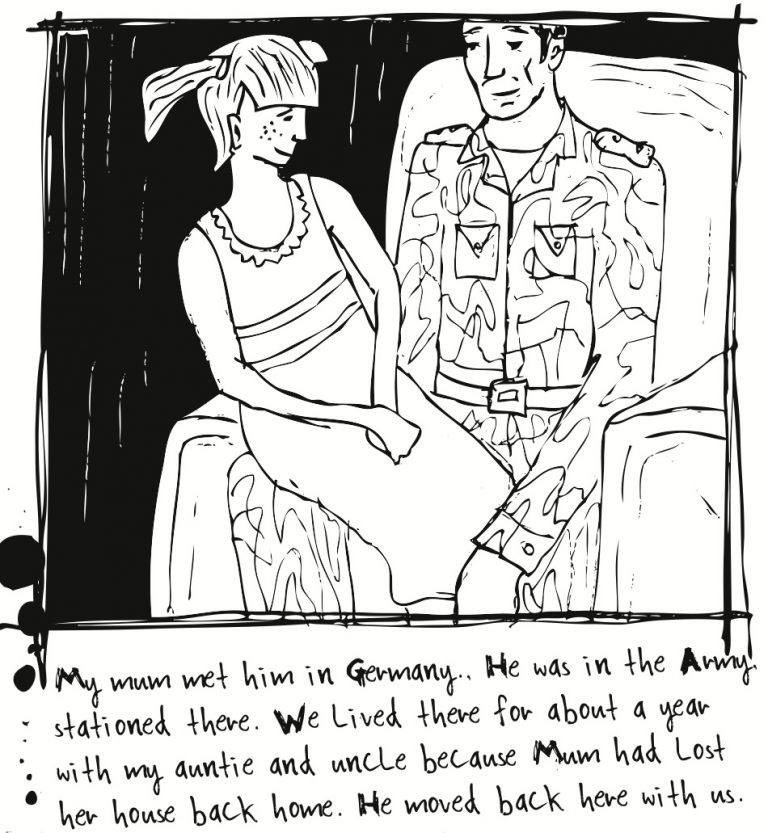 My mum met him in Germany.. He was in the Army
stationed there. We Lived there for about a year
with my auntie and uncle because Mum had Lost
her house back home. He moved back here with us.